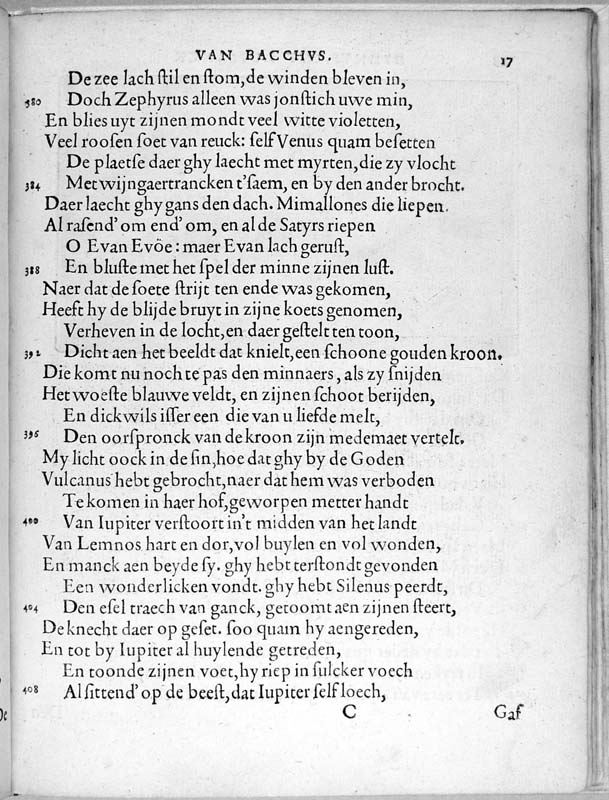 VAN BACCHVS. 17
De zee lach stil en stom, de winden bleven in,
380 Doch Zephyrus alleen was jonstich uwe min,
En blies uyt zijnen mondt veel witte violetten,
Veel roosen soet van reuck: self Venus quam besetten
De plaetse daer ghy laecht met myrten, die zy vlocht
384 Met wijngaertrancken t'saem, en by den ander brocht.
Daer laecht ghy gans den dach. Mimallones die liepen.
Al rasend' om end' om, en al de Satyrs riepen
O Evan Evöe: maer Evan lach gerust,
388 En bluste met het spel der minne zijnen lust.
Naer dat de soete strijt ten ende was gekomen,
Heeft hy de blijde bruyt in zijne koets genomen,
Verheven in de locht, en daer gestelt ten toon,
392 Dicht aen het beeldt dat knielt, een schoone gouden kroon.
Die komt nu noch te pas den minnaers, als zy snijden
Het woeste blauwe veldt, en zijnen schoot berijden,
En dickwils isser een die van u liefde melt,
396 Den oorspronck van de kroon zijn medemaet vertelt.
My licht oock in de sin, hoe dat ghy by de Goden
Vulcanus hebt gebrocht, naer dat hem was verboden
Te komen in haer hof, geworpen metter handt
400 Van Iupiter verstoort in't midden van het landt
Van Lemnos hart en dor, vol buylen en vol wonden,
En manck aen beyde sy. ghy hebt terstondt gevonden
Een wonderlicken vondt. ghy hebt Silenus peerdt,
404 Den esel traech van ganck, getoomt aen zijnen steert,
De knecht daer op geset. soo quam hy aengereden,
En tot by Iupiter al huylende getreden,
En toonde zijnen voet, hy riep in sulcker voech
408 Al sittend' op de beest, dat Iupiter self loech,
C Gaf